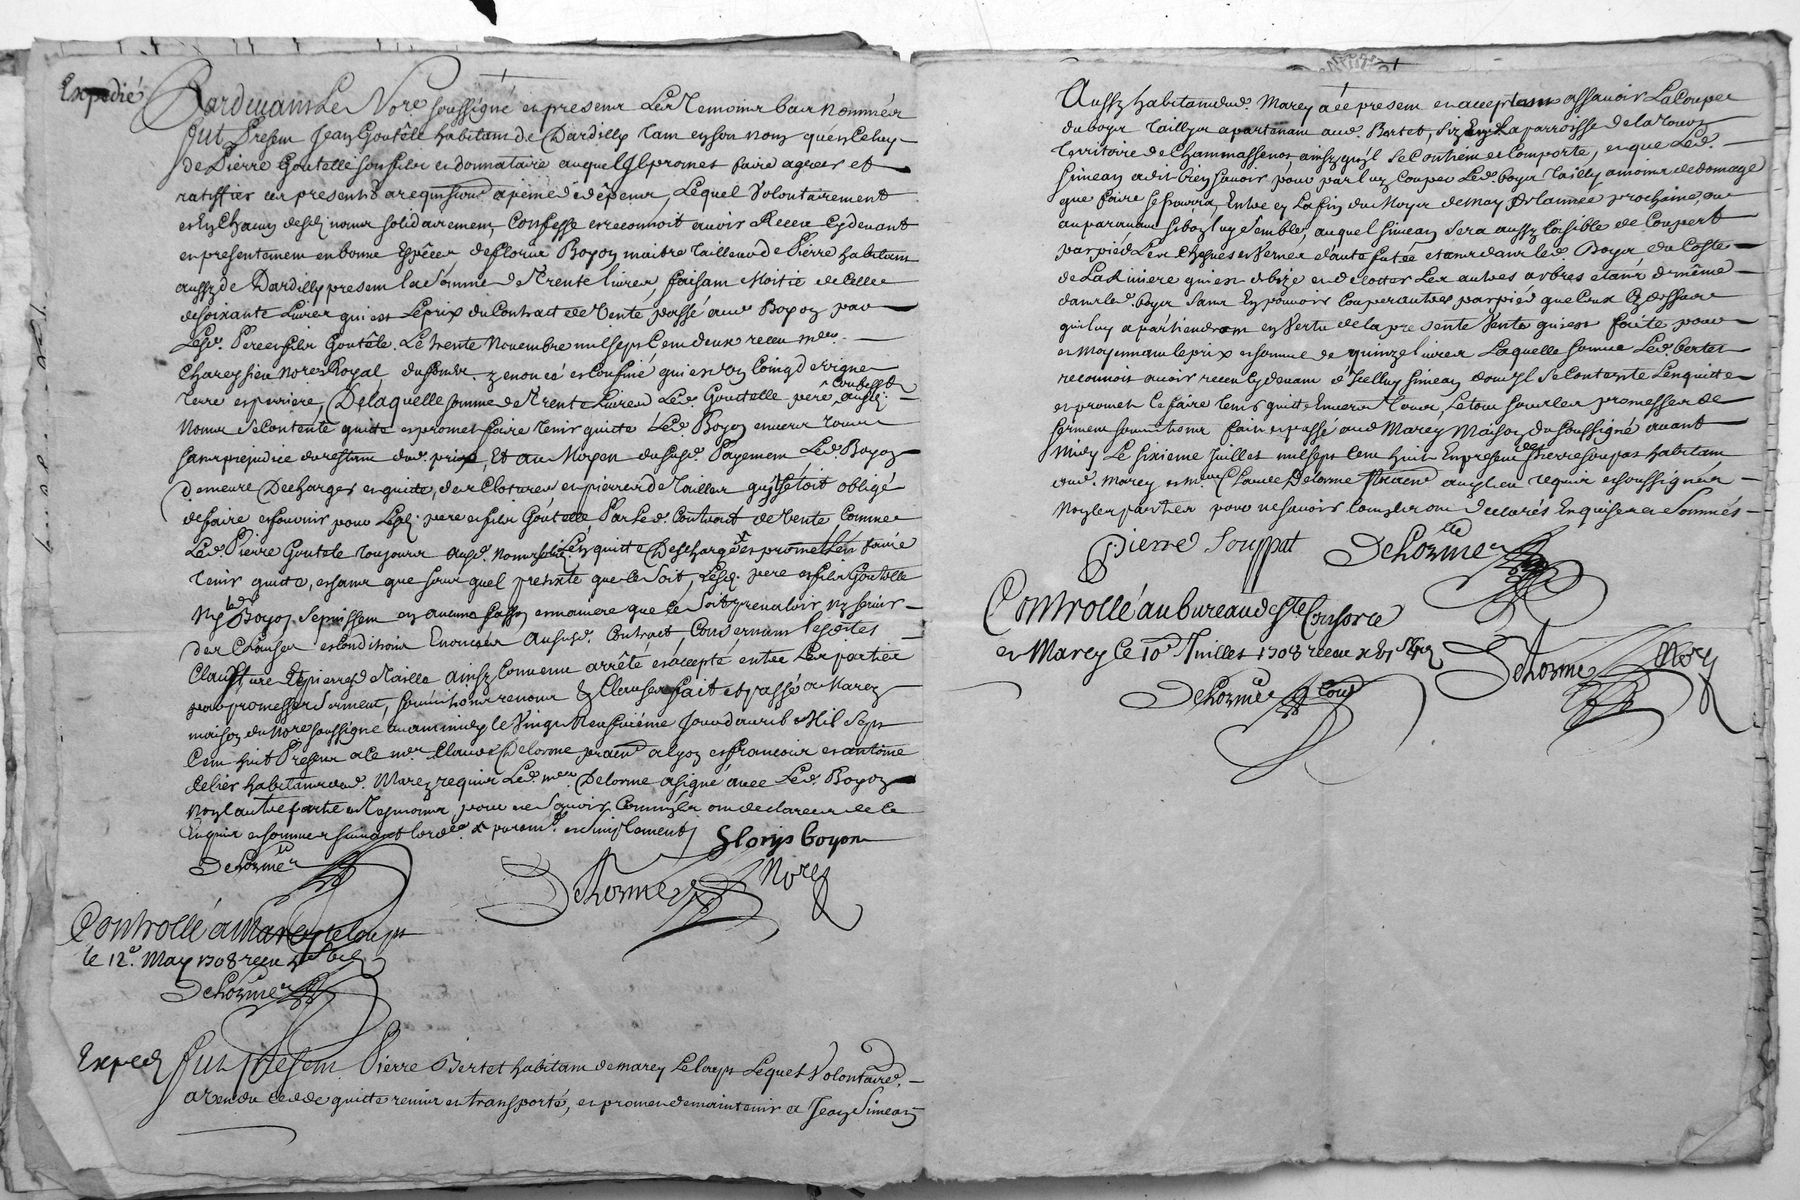 Expedié
Pardevant Le No.re soussigné en presence Des Temoins bas nommés
fut Present Jean Goutelle habitant de Dardilly tant en son nom que en celuy
de Pierre Goutelle son fils et donnataire auquel Il promet faire agreer et
ratiffier ces presentes a requisition a peine de depens, Lequel Volontairement
et En chacun desd. noms solidairement Confesse et reconnoit avoir Receu Cydevant
et presentement en bonne Espèces de floris Boyon maitre tailleur de Pierre habitant
aussy de Dardilly present la Somme de Trente livres faisant Moitie de Celle
de soixante Livres qui est Le prix du Contract de Vente passé aud. Boyon par
Lesd. Pere et fils Goutelle. Le trente Novembre mil sept Cent deux receu m.e
Chareysieu No.re Royal du fonds y enoncé et Confiné qui est un Coing de vigne
Terre et perriere, De laquelle somme de Trente Livres Led. Goutelle pere ausd.
Noms Se Contente quitte et promet faire tenir quitte Led. Boyon envers tous
sans prejudice du restant dud. prix, Et au Moyen du susd. Payement Led. Boyon
Demeure Decharger et quitte, des Clotures et pierres de Tailler qu'il étoit obligé
de faire et fournir pour Lesd. pere et fils Goutelle Par Led. Contract de Vente, Comme
Led. Pierre Goutele Toujours ausd. Noms L'en quitte Descharge et promet L'en faire
tenir quitte, et sans que sous quel pretexte que ce Soit, Lesd. pere et fils Goutelle
Ny Led. Boyon Se puissent en aucune fasson et maniere que ce Soit prevaloir ny servir
des Clauses et Conditions Enoncées Au susd. Contract, Concernant lesdites
Clausture Et pierres de Taille ainsy Convenu arrêté et accepté entre Les parties
par promesses Serment, soumissions renonc. & Clauses fait et passé a Marcy
maison du No.re soussigné avant midy le Vingt Neufvième Jour d'avril Mil Sept
Cent huit Presens a ce m.e Claude Delorme pratn. a Lyon et francois et antoine
habitans aud. Marcy requis Led. m.e Delorme a signé avec Led. Boyon
Non l'autre partie et Tesmoins pour ne Sçavoir, Comme ils ont declarer de ce
Enquis et sommes suivant
florys boyon
Delorme
Delorme No.re
Controllé a Marcy le loup
le 12.e May 1708 receu
Delorme
Exped. fut Present Pierre Bertet habitant de marcy Le loup Lequel Volontaire.t
a vendu cedde quitte remis et transporté, et promet de maintenir a Jean Simean
Aussy habitant dud. Marcy a ce present et acceptant assavoir La Couper
du boyer Taillyer apartenant aud. Bertet, Size en La parroisse de la Tour
Territoire de Chammassenot ainsy qu'yl Se Contient et Comporte, et que Led.
Simean a dit bien Savoir pour par luy Couper Led. boyer Tailly a moins de domage
que faire Se pourra, Entre cy La fin du Moys de may De l'année prochaine, ou
auparavant si bon luy Semble, auquel Simean Sera aussy Loisible de Coupert
par pied Les Chesnes et Vernes d'haute futée etant dans led. Boyer du Coste
de La Riviere qui est de bize et de cotter Les autres arbres etants de même
dans led. boyer Sans En pouvoir Couper autres par pied que Ceux Cy dessus
qui luy apartiendront en Vertu de la presente Vente qui est faite pour
et Moyennant le prix et somme de quinze livres Laquelle Somme Led. bertet
reconnoit avoir receu Cy devant d'Icelluy Simean dont Il Se Contente L'en quitte
et promet Le faire Tenir quitte Envers Tous, Le tout sous les promesses de
Serment soumissions fait et passé aud. Marcy Maison du soussigné avant
Midy Le Sixieme Juillet mil sept Cent huit En presence de Pierre Soupat habitant
aud. Marcy et m.e Claude Delorme requis et soussignés
Non les parties pour ne savoir Comme ils ont Declarés Enquises et Sommés
Pierre Souppat Delorme
Controllé au bureau de S.te Consorce
et Marcy Ce 10.e Juillet 1708 receu
Delorme
Delorme No.re